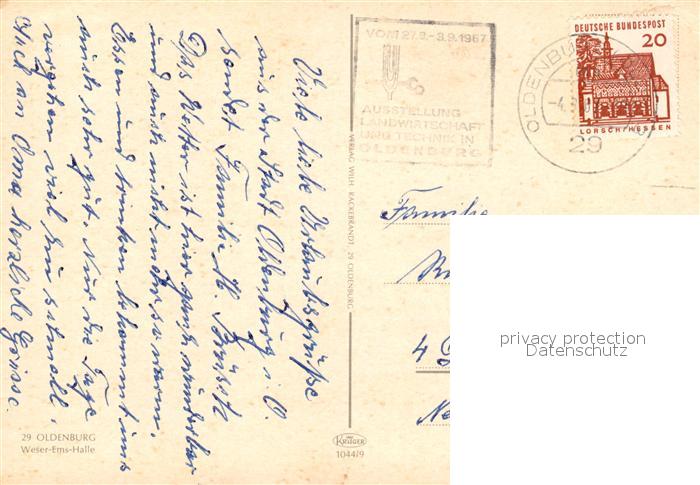 Viele liebe Urlaubsgrüße
aus der Stadt Oldenburg i. O.
sendet Familie H.
Das Wetter ist hier ganz wunderbar
und auch nicht mehr so warm.
Essen und trinken bekommt uns
auch sehr gut. Nur die Tage
vergehen viel zu schnell.
Auch an Oma herzliche Grüsse.
29 OLDENBURG
Weser-Ems-Halle
VERLAG WILH. RACKEBRANDT, 29 OLDENBURG
KRÜGER
1044/9
VOM 27.8.-3.9.1967
AUSSTELLUNG
LANDWIRTSCHAFT
UND TECHNIK IN
OLDENBURG
OLDENBURG
29
DEUTSCHE BUNDESPOST
20
LORSCH/HESSEN
Familie
4
privacy protection
Datenschutz